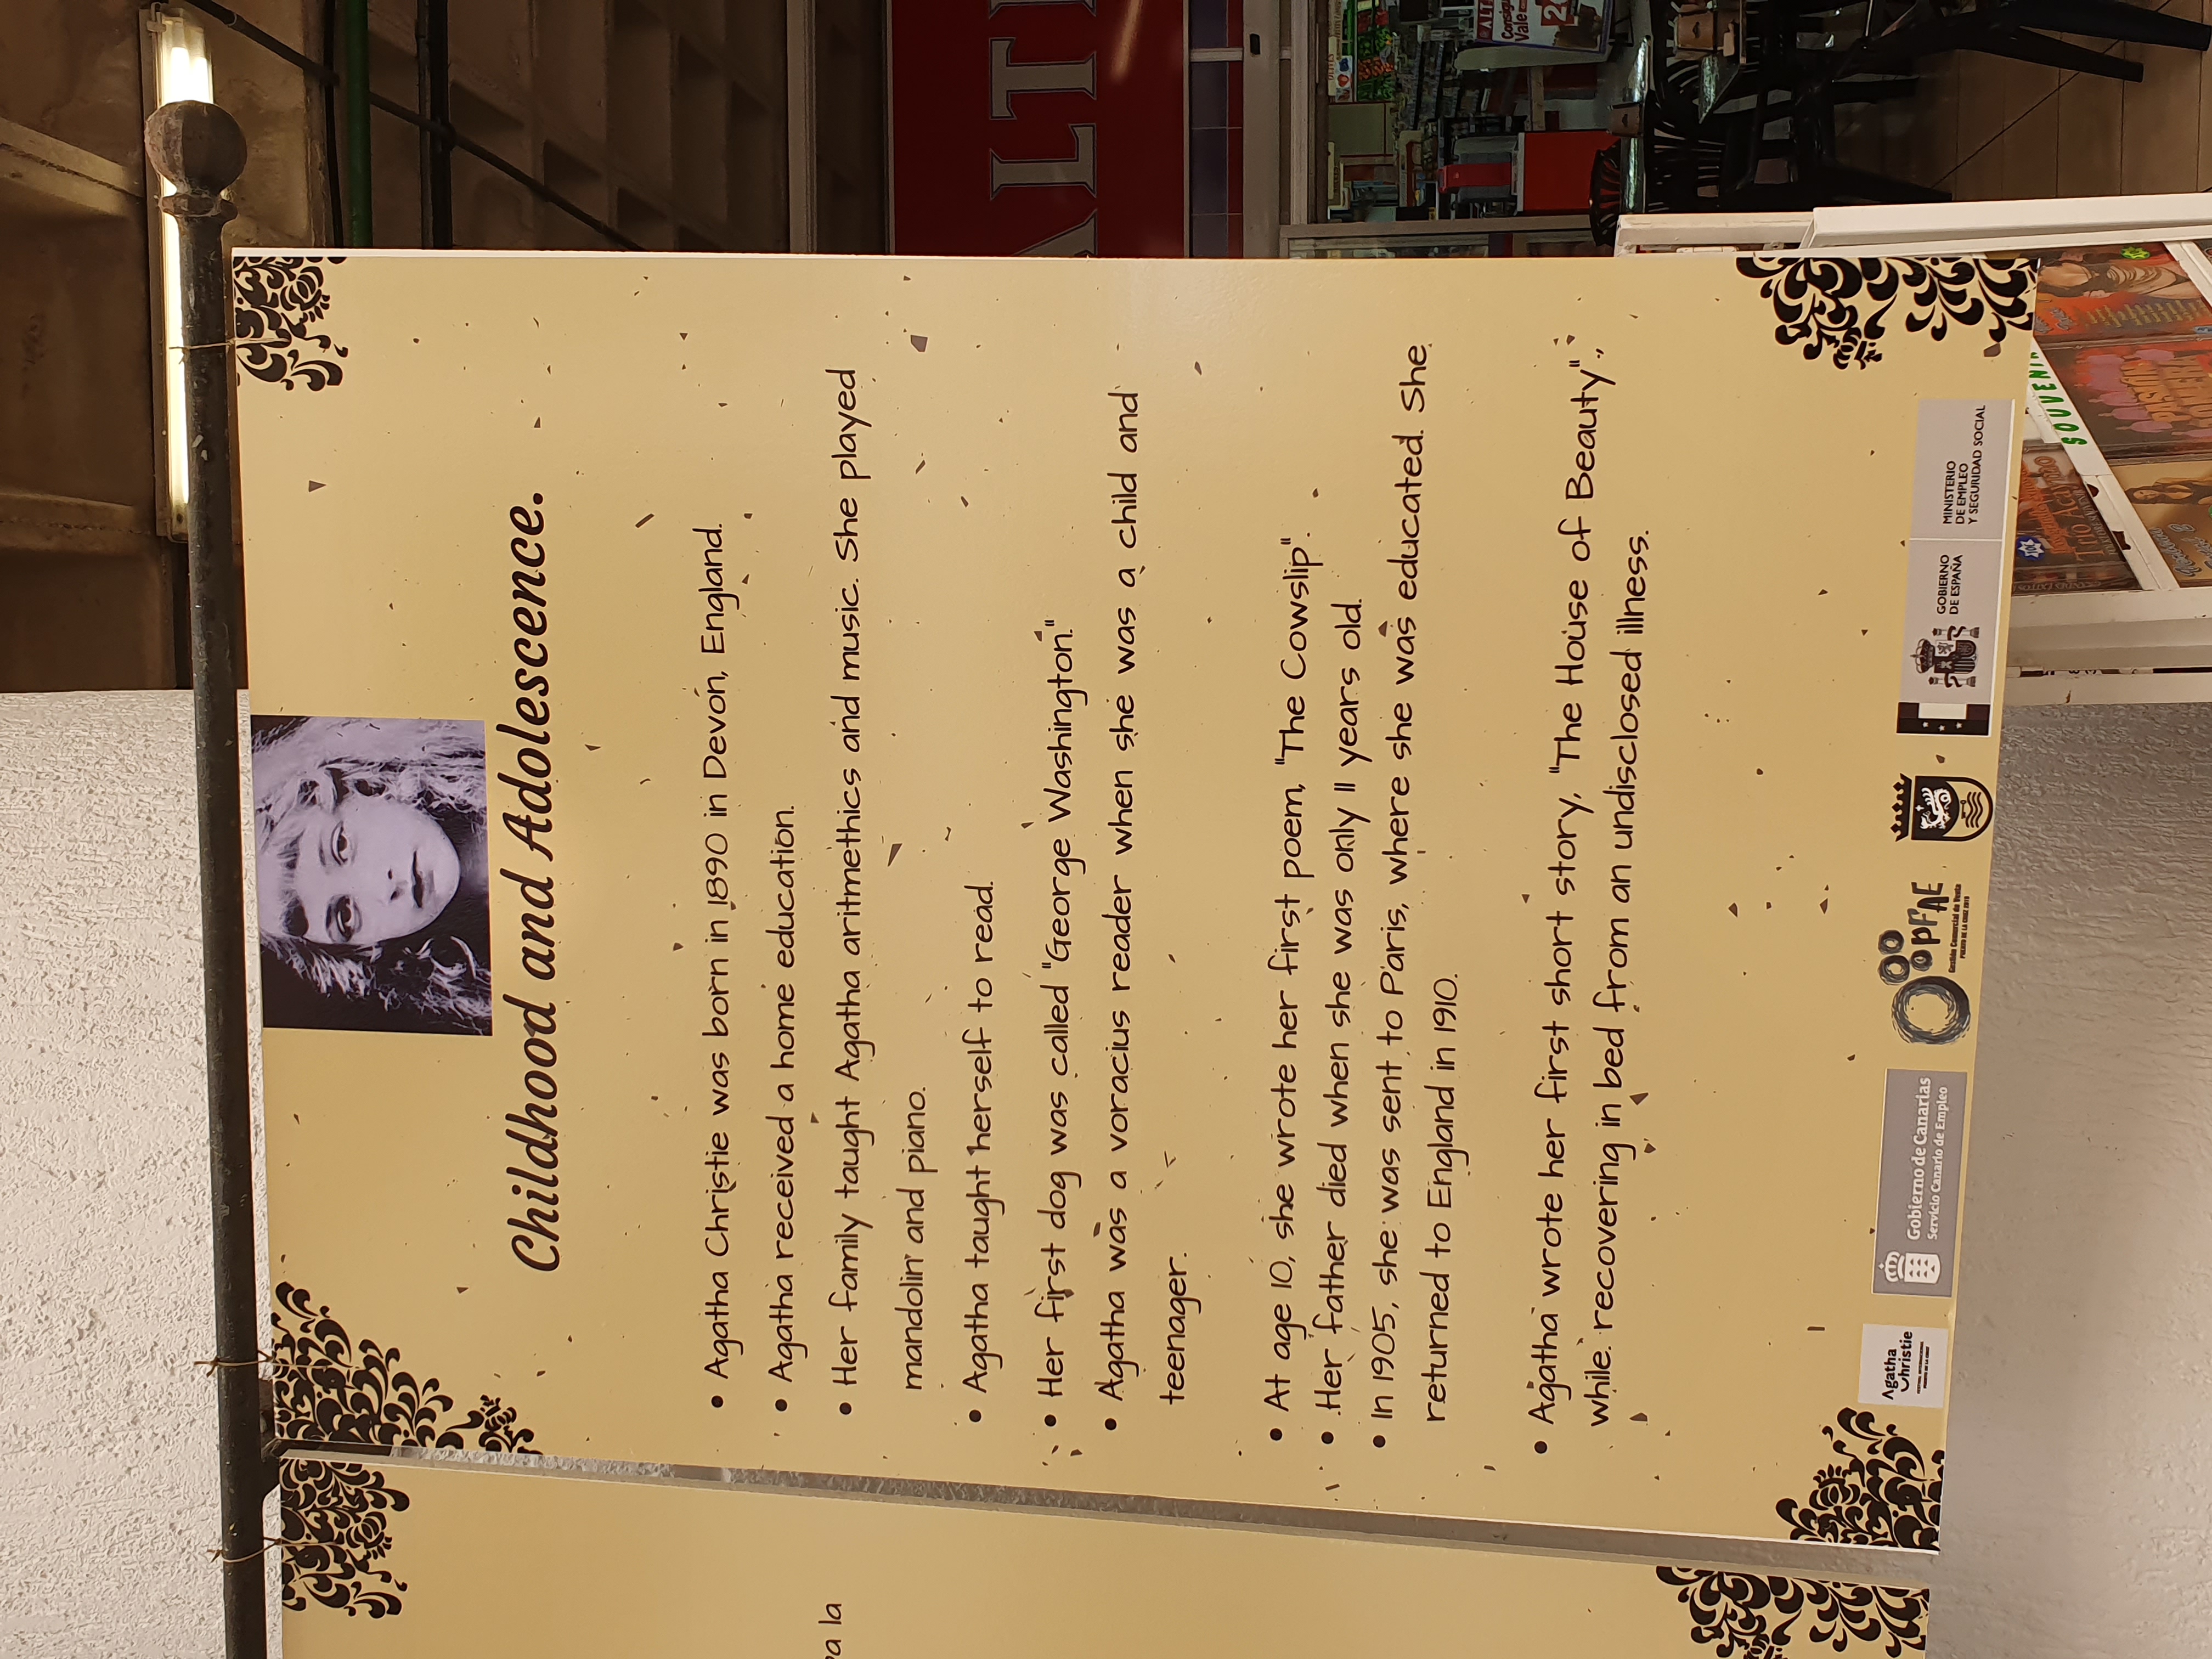 Childhood and Adolescence.
• Agatha Christie was born in 1890 in Devon, England.
• Agatha received a home education.
• Her family taught Agatha aritmethics and music. She played
mandolin and piano.
• Agatha taught herself to read.
• Her first dog was called "George Washington."
• Agatha was a voracius reader when she was a child and
teenager.
• At age 10, she wrote her first poem, "The Cowslip".
• Her father died when she was only 11 years old.
• In 1905, she was sent to Paris, where she was educated. She
returned to England in 1910.
• Agatha wrote her first short story, "The House of Beauty",
while recovering in bed from an undisclosed illness.
Agatha
Christie
Gobierno de Canarias
Servicio Canario de Empleo
PFAE
GOBIERNO
DE ESPAÑA
MINISTERIO
DE EMPLEO
Y SEGURIDAD SOCIAL
ALT
SOUVENIR
Trio
Vale
la